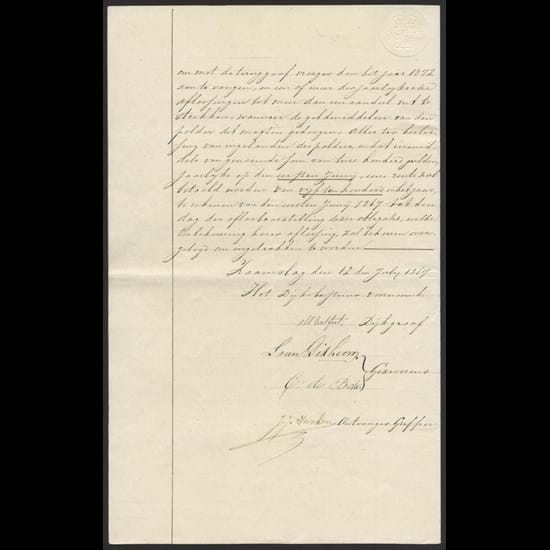 om met de terugGraaf vroeger dan het jaar 1872
aan te vangen, en een of meer der jaarlijksche
aflossingen tot meer dan een aandeel uit te
strekken, wanneer de geldmiddelen van den
polder dit mogten gedoogen. Alles ter
van ingelanden des polders, en
dele van genoemde som van twee honderd gulden,
jaarlijks op den eersten Junij, eene rente zal
betaald worden van vijf ten honderd in het jaar,
te rekenen van den eersten Junij 1867 tot den
dag der aflosbaarstelling dezer obligatie, welke
ter bekoming harer aflossing, zal behooren over-
gelegd en ingetrokken te worden.
Zaamslag den 12 den July 1867
Het Dijksbestuur voornoemd
Dijkgraaf
Gezworens
C. de
Ontvanger Griffier